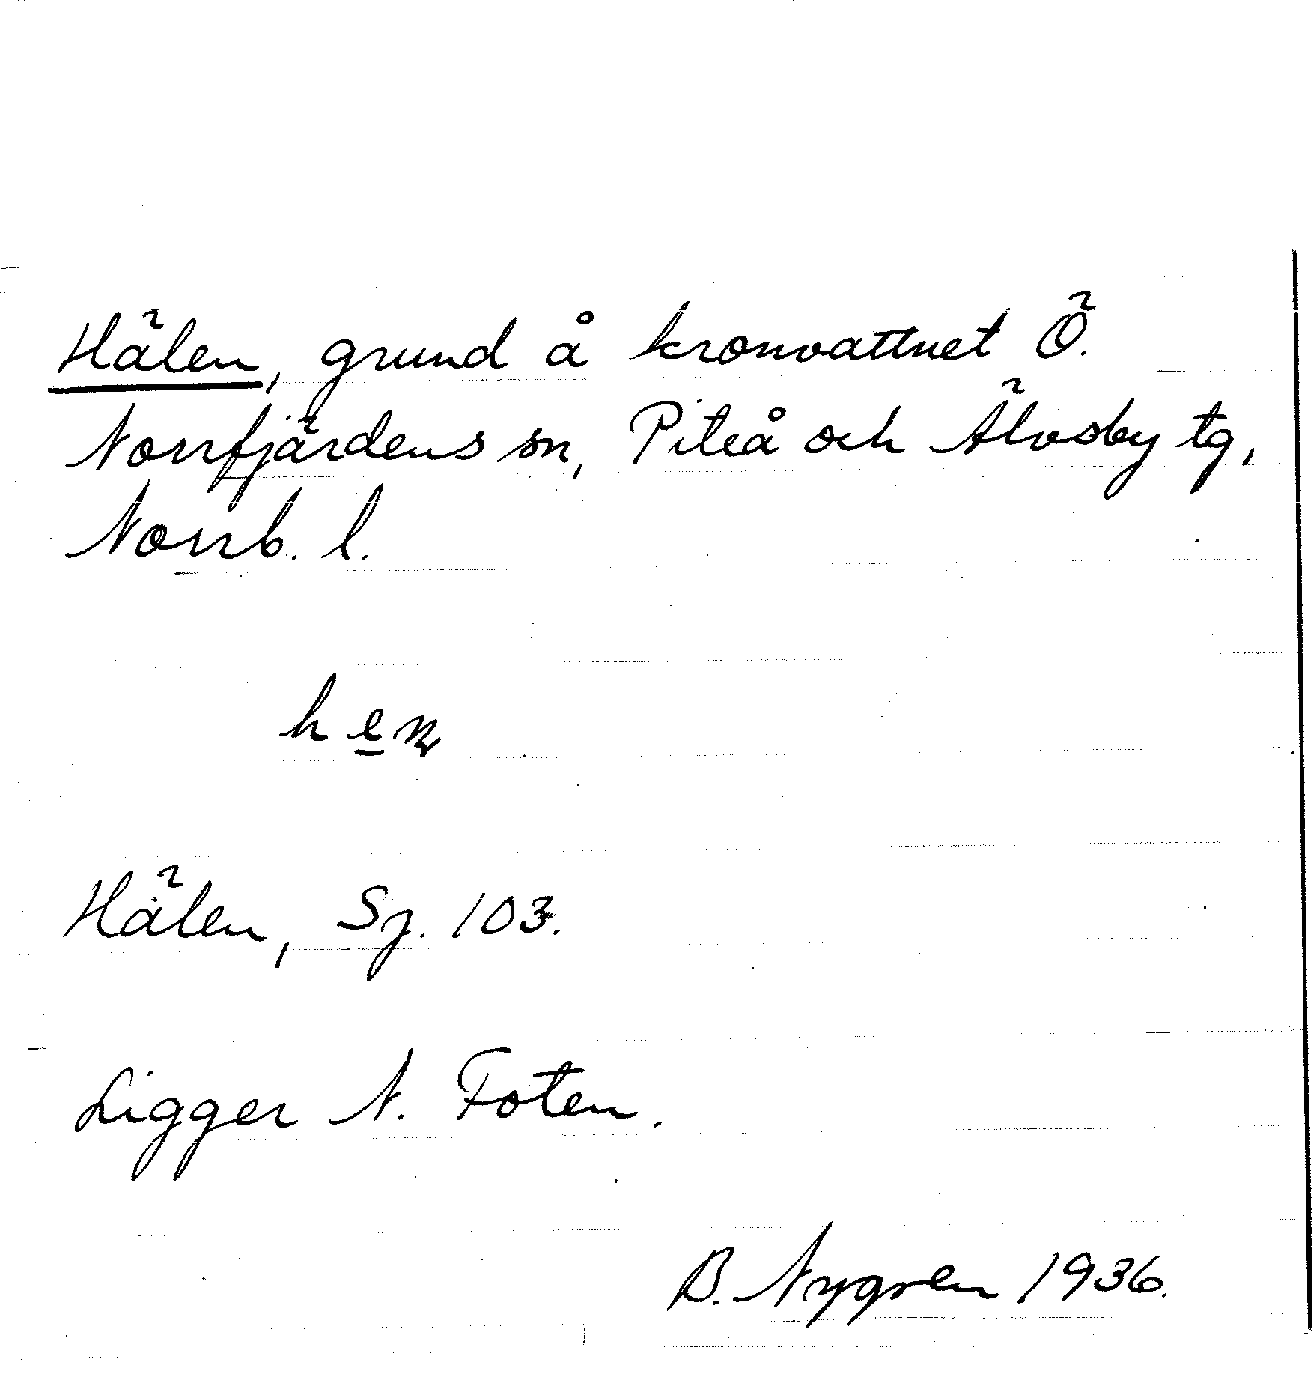 Hälen, grund å kronvattnet Ö.
Norrfjärdens sn, Piteå och Älvsby tg,
Norrb. l.
Hälen, Sj. 103.
Ligger N. Foten.
B. Nygren 1936.